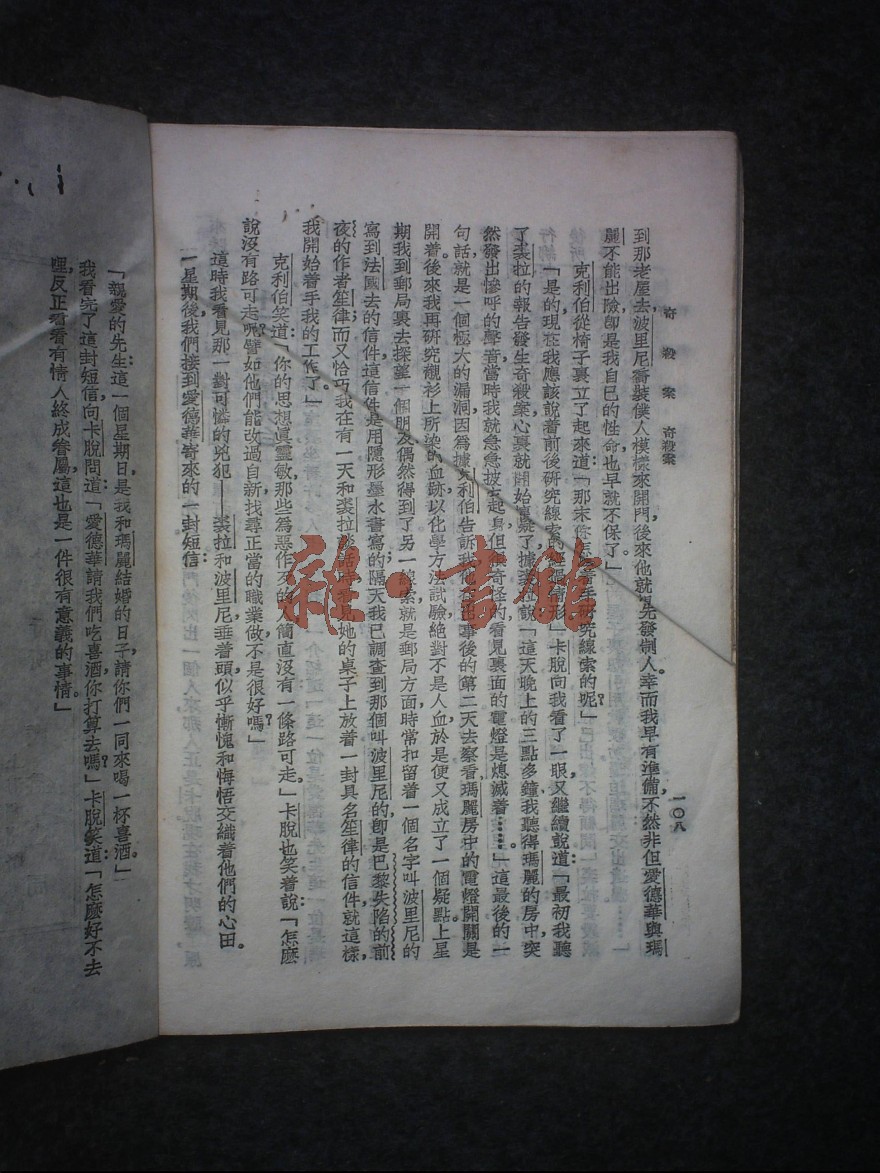 奇殺案 奇殺案
一〇八
到那老屋去波里尼喬裝僕人模樣來開門後來他就先發制人幸而我早有準備,不然非但愛德華與瑪
麗不能出險卽是我自已的性命也早就不保了。」
克利伯從椅子裏立了起來道:「那末你怎麼着手研究線索的呢?」
「是的,現在我應該說着前後研究線索的情形」卡脫向我看了一眼又繼續說道:「最初我聽
了裘拉的報告發生奇殺案心裏就開始懷疑了據她說「這天晚上的三點多鐘我聽得瑪麗的房中突
然發出慘呼的聲音當時我就急急披衣起身但很奇怪的看見裏面的電燈是熄滅着……」這最後的一
句話就是一個極大的漏洞因爲據克利伯告訴我他在出事後的第二天去察看瑪麗房中的電燈開關是
開着。後來我再研究襯衫上所染的血跡以化學方法試驗絕對不是人血於是便又成立了一個疑點上星
期我到郵局裏去探望一個朋友偶然得到了另一線索就是郵局方面時常扣留着一個名字叫波里尼的
寫到法國去的信件這信件是用隱形墨水書寫的隔天我已調查到那個叫波里尼的卽是巴黎失陷的前
夜的作者笙律而又恰巧我在有一天和裘拉談話時看見她的桌子上放着一封具名笙律的信件就這樣,
我開始着手我的工作了。」
克利伯笑道:「你的思想眞靈敏那些爲惡作歹的人簡直沒有一條路可走。」卡脫也笑着說:「怎麼
說沒有路可走呢?譬如他們能改過自新找尋正當的職業做不是很好嗎?」
這時我看見那一對可憐的兇犯——裘拉和波里尼垂着頭似乎慚愧和悔悟交織着他們的心田。
一星期後我們接到愛德華寄來的一封短信:
「親愛的先生:這一個星期日,是我和瑪麗結婚的日子,請你們一同來喝一杯喜酒。」
我看完了這封短信,向卡脫問道:「愛德華請我們吃喜酒,你打算去嗎?」卡脫笑道:「怎麼好不去
哩,反正看看有情人終成眷屬,這也是一件很有意義的事情。」
雜·書館